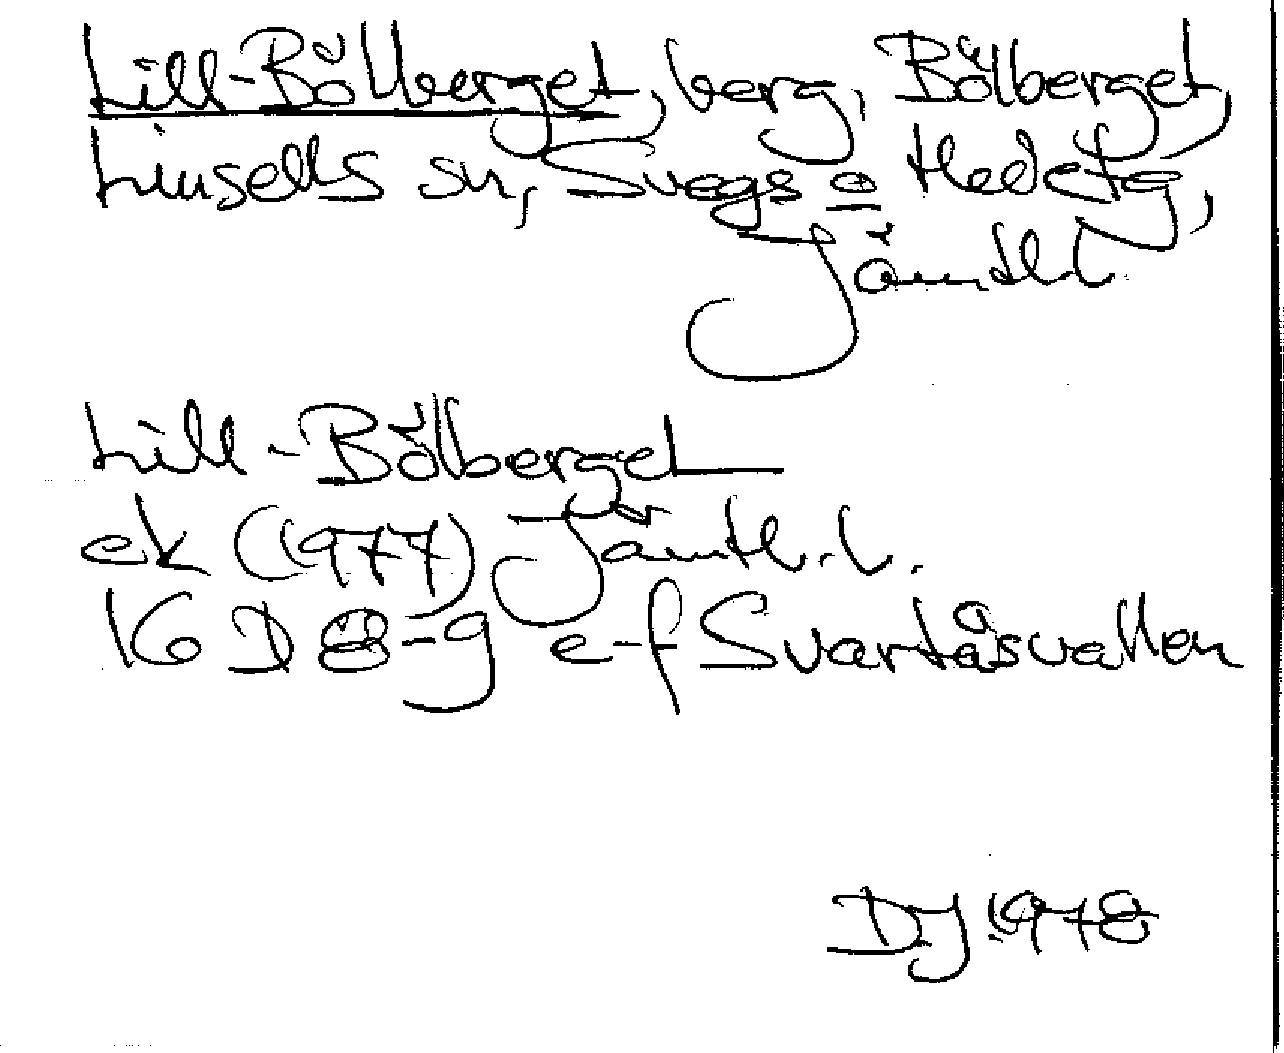 Lill-Bölberget, berg, Bölberget,
Linsells sn, Svegs o Hedetg,
Jämtl.l.
Lill-Bölberget
ek (1977) Jämtl.l.
16 D 8-9 e-f Svartåsvallen
DJ 1978